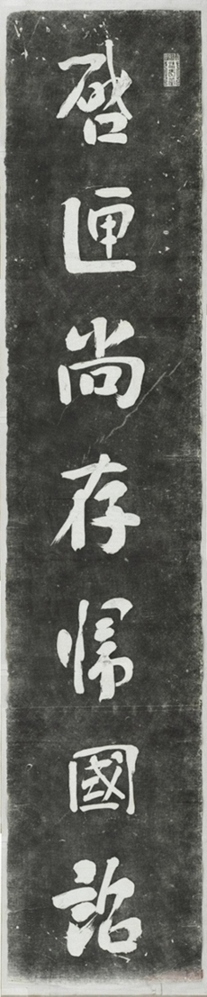 啓匣尚存歸國詔